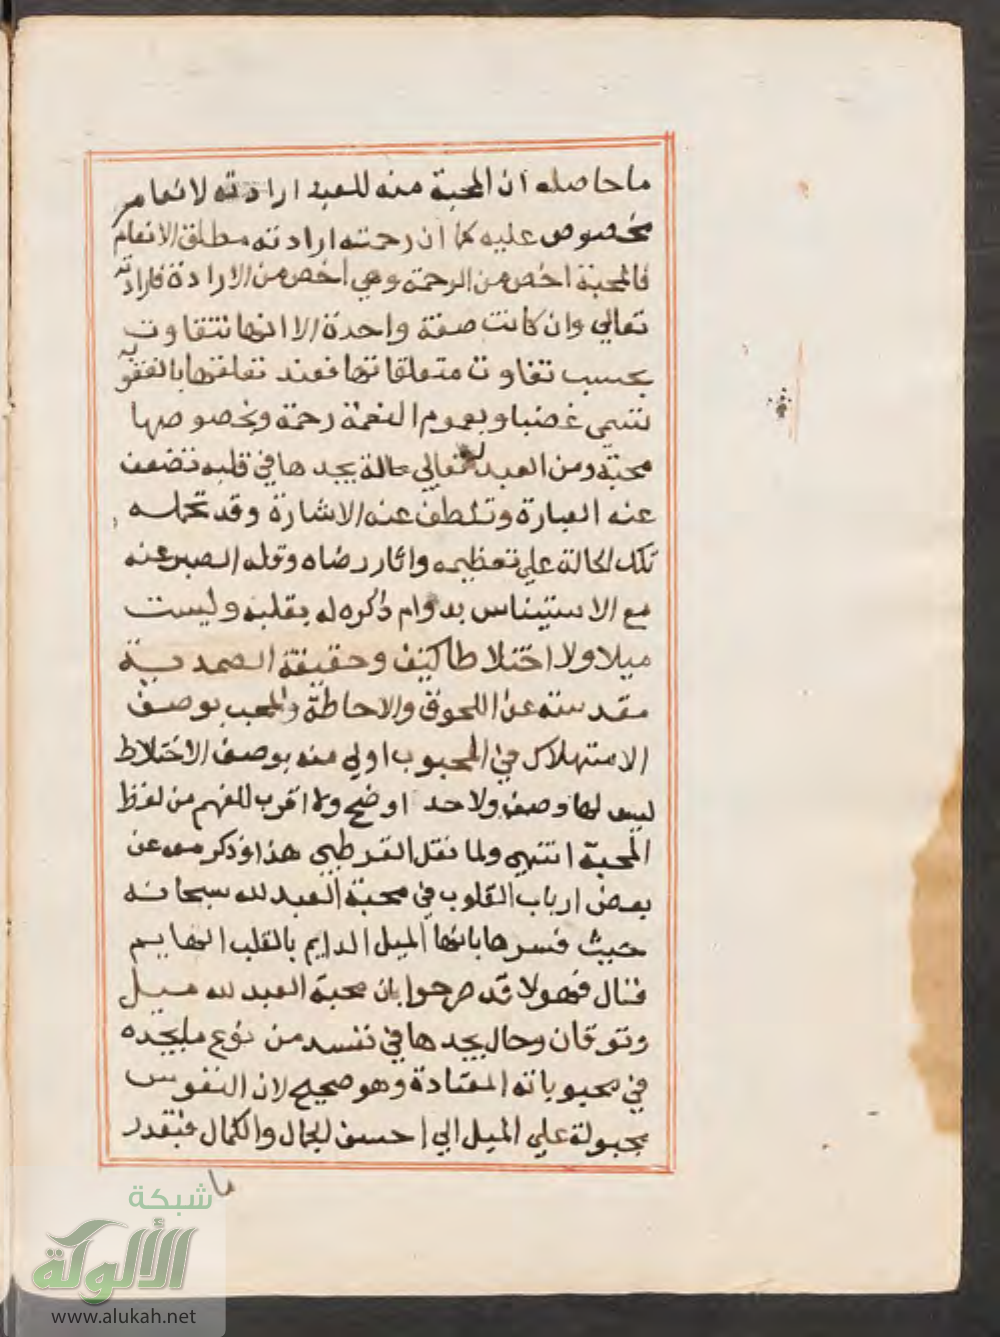 ما حاصله ان المحبة منه للعبد ارادته لانعام
مخصوص عليه كما ان رحمته ارادته مطلق الانعام
فالمحبة اخص من الرحمة وهي اخص من الارادة فارادته
تعالي وان كانت صفة واحدة الا انها تتفاوت
بحسب تفاوت متعلقاتها فعند تعلقها بالعقوبة
تسمي غضبا وبعموم النعمة رحمة وبخصوصها
محبة ومن العبد له تعالي حالة يجدها في قلبه تضعف
عنه العبارة وتلطف عنه الاشارة وقد تحمله
تلك الحالة علي تعظيمه واثار رضاه وقلة الصبر عنه
مع الاستيناس بدوام ذكره له بقلبه وليست
ميلا ولا اختلاطا كيف وحقيقة الصمدية
مقدسة عن اللحوق والاحاطة والمحب بوصف
الاستهلاك في المحبوب اولي منه بوصف الاختلاط
ليس لها وصف ولا حد اوضح ولا اقرب للفهم من لفظ
المحبة انتهي ولما نقل القرطبي هذا وذكر عن
بعض ارباب القلوب في محبة العبد لله سبحانه
حيث فسرها بانها الميل الدايم بالقلب الهايم
فقال فهولا قد صرحوا بان محبة العبد لله ميل
وتوقان وحال يجدها في نفسه من نوع ما يجده
في محبوباته المعتادة وهو صحيح لان النفوس
مجبولة علي الميل الي احسن الجمال والكمال فبقدر
ما
شبكة
الألوكة
www.alukah.net